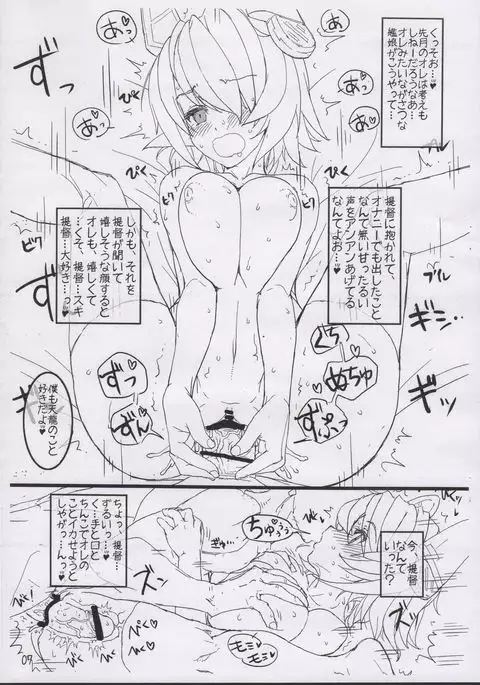 くっそお…♥
先月のオレは考えも
しねーだろうなあ…
オレみたいながさつな
艦娘がこうやって…
提督に抱かれて、
オナニーでも出したこと
なんて無い甘ったるい
声をアンアンあげてる
なんてよお…♥
しかも、それを
提督が聞いて
嬉しそうな顔すると
オレも、嬉しくて
…くそ、提督…スキ
提督…大好き…っ♥
僕も天龍のこと
好きだよ♥
あっ♥
あっ♥
あっ♥
あっ♥
ずっ
ずっ
びくっ
ぴくっ
ビク
ビク
ぐち
ぬちゅ
ずぷっ
ずっ
ずん
今、提督
なんて
いった?
ちょっ、提督…
ずるいっ…♥
く…手と口と
ちんこでオレの
ことイカせようと
しやがっ…んっ♥
ちゅううぅ
ぎゅ…
ズン
ズッ
モミ
モミ